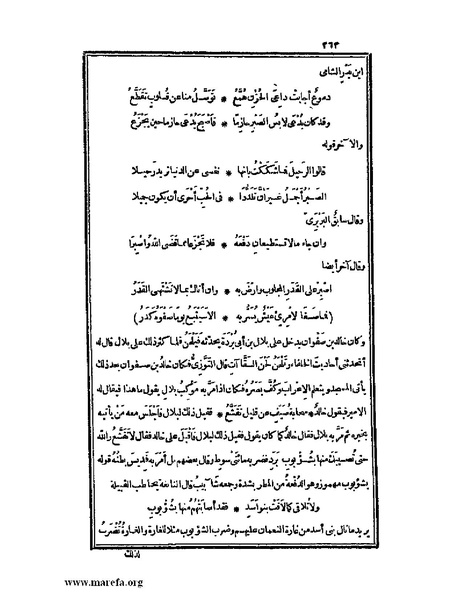 ٣٦٣
ابن بشير الشامي
دموع أجابت داعي الحزن همع * توصل منا عن قلوب تقطع
وقد كان يدعى لابس الصبر حازما * فأصبح يدعى حازما حين يجزع
والا خر قوله
قالوا الرحيل فما شككت بانها * نفسي عن الدنيا تريد رحيلا
الصبر أجمل غير ان تلددا * فى الحب أحرى أن يكون جميلا
وقال سابق البربرى
وان جاء مالا تستطيعان دفعه * فلا تجزعا مما قضى الله واصبرا
وقال آخر أيضا
اصبر على القدر المجلوب وارض به * وان أتاك بما لا تشتهى القدر
(فما صفا لامرئ عيش يسر به * الا سيتبع يوما صفوه كدر)
وكان خالد بن صفوان يدخل على بلال بن أبى بردة يحدثه فيلحن فلما كثر ذلك على بلال قال له
أتحدثنى أحاديث الخلفاء وتلحن لحن السقاآت قال التوزى فكان خالد بن صفوان بعد ذلك
يأتى المسجد ويتعلم الاعراب وكف بصره فكان اذا مر به موكب بلال يقول ما هذا فيقال له
الامير فيقول خالد * سحابة صيف عن قليل تقشع * فقيل ذلك لبلال فأجلس معه من يأتيه
بخبره ثم مر به بلال فقال خالد كما كان يقول فقيل ذلك لبلال فأقبل على خالد فقال لا تقشع والله
حتى تصيبك منها بشؤبوب برد فضربه مائتى سوط وقال بعضهم بل أمر به فديس بطنه قوله
بشؤبوب مهموز وهو الدفعة من المطر بشدة وجمعه شآبيب قال النابغة يخاطب القبيلة
ولا تلاقى كما لاقت بنو أسد * فقد أصابتهم منها بشؤبوب
يريد ما نال بنى أسد من غارة النعمان عليهم وضرب الشؤبوب مثلا للغارة والغارة تضرب
لذلك
www.marefa.org